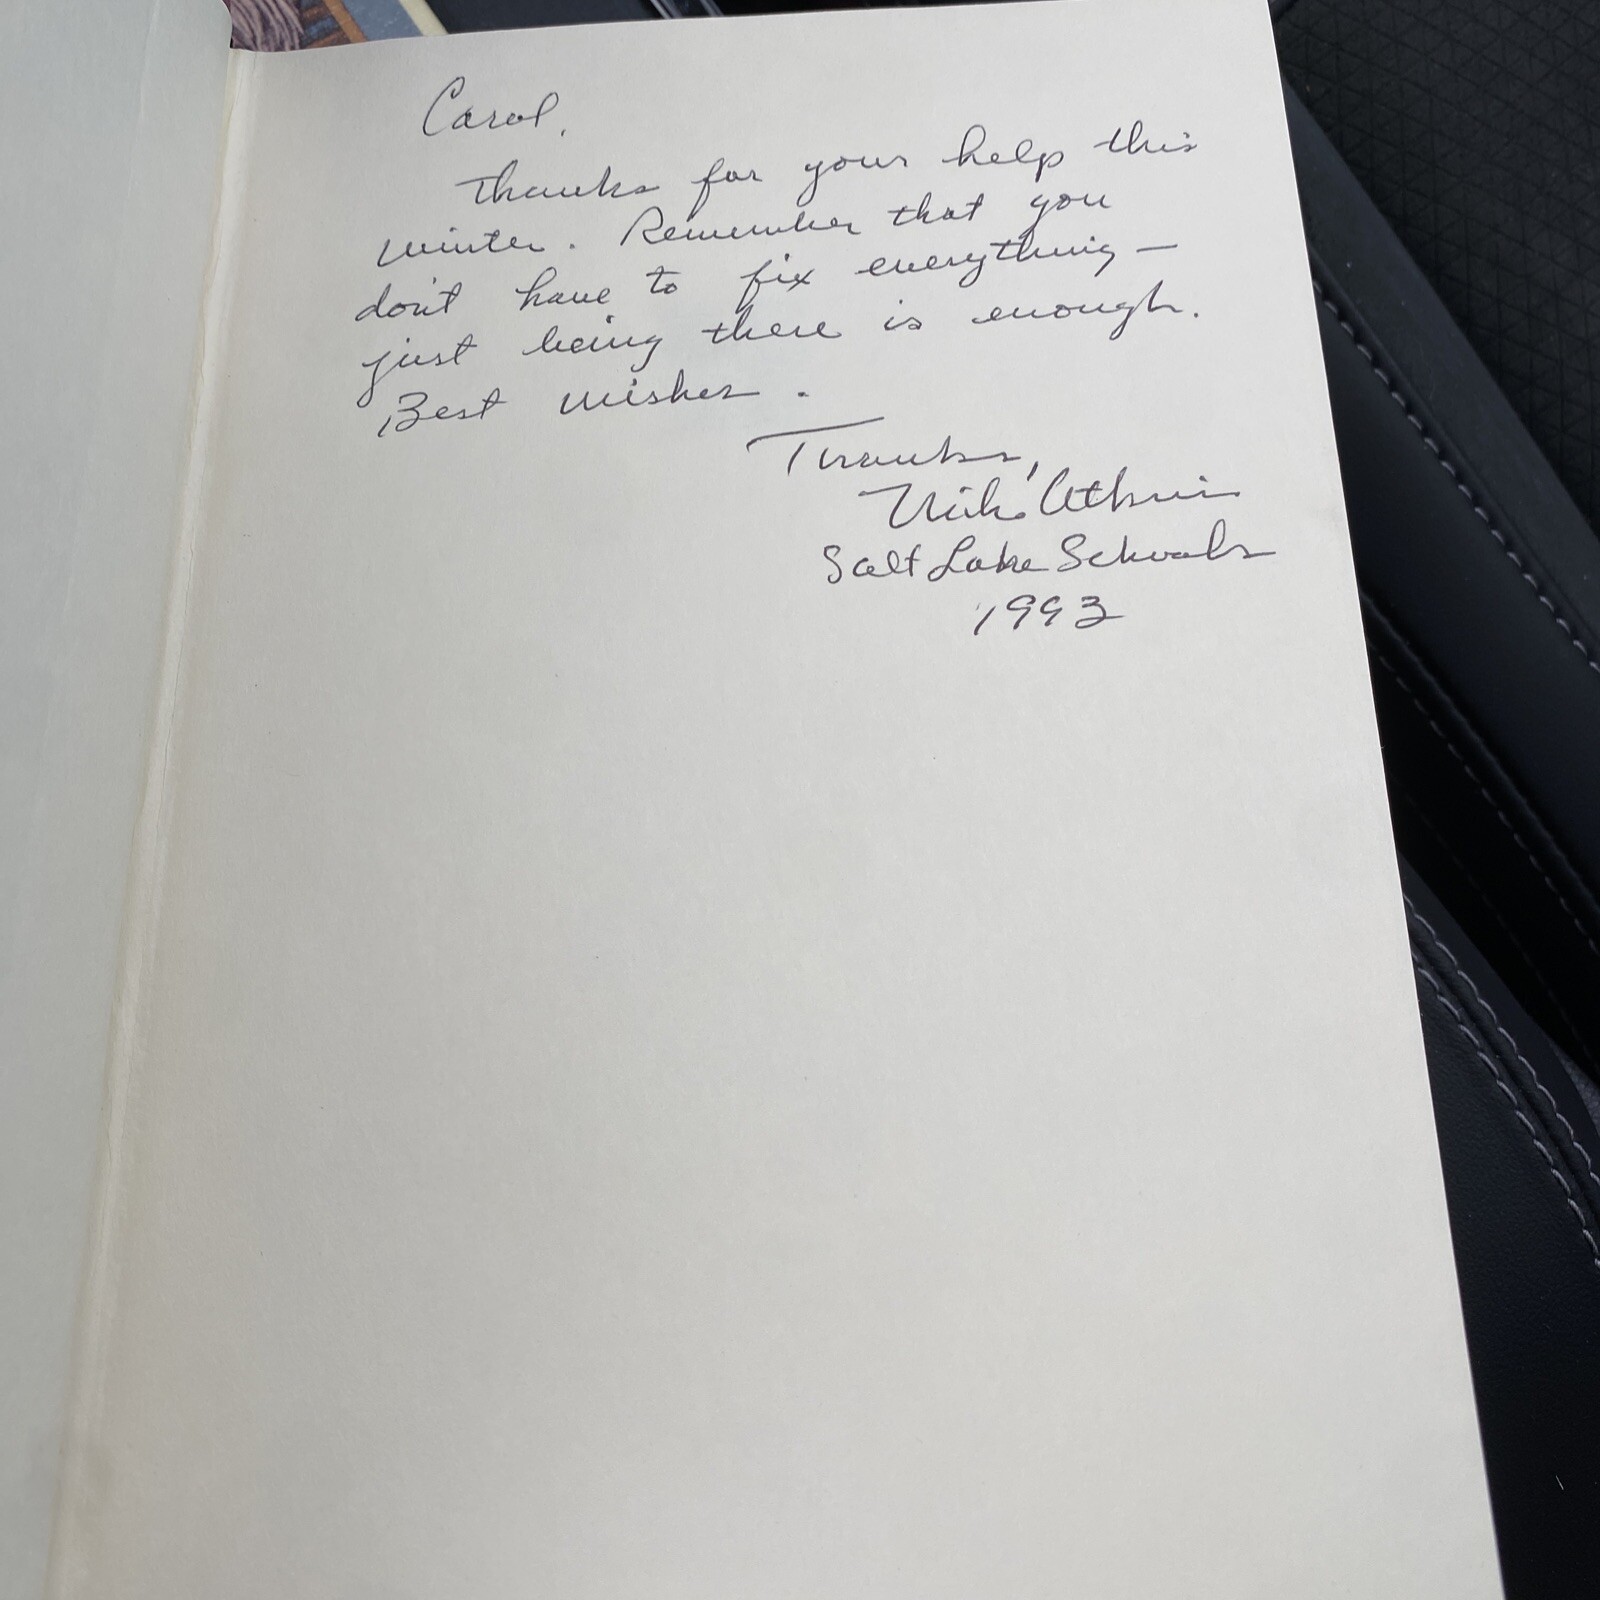 Carol,
Thanks for your help this
winter. Remember that you
don't have to fix everything —
just being there is enough.
Best wishes.
Thanks,
Atkin
Salt Lake Schools
1993